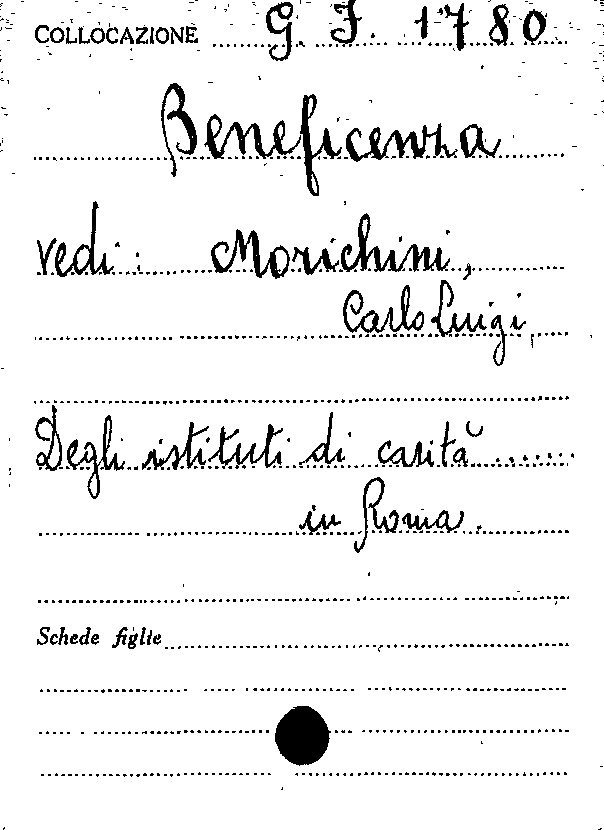 COLLOCAZIONE G. J. 1780
Beneficenza
vedi: Morichini,
Carlo Luigi,
Degli istituti di carità .......
in Roma.
Schede figlie